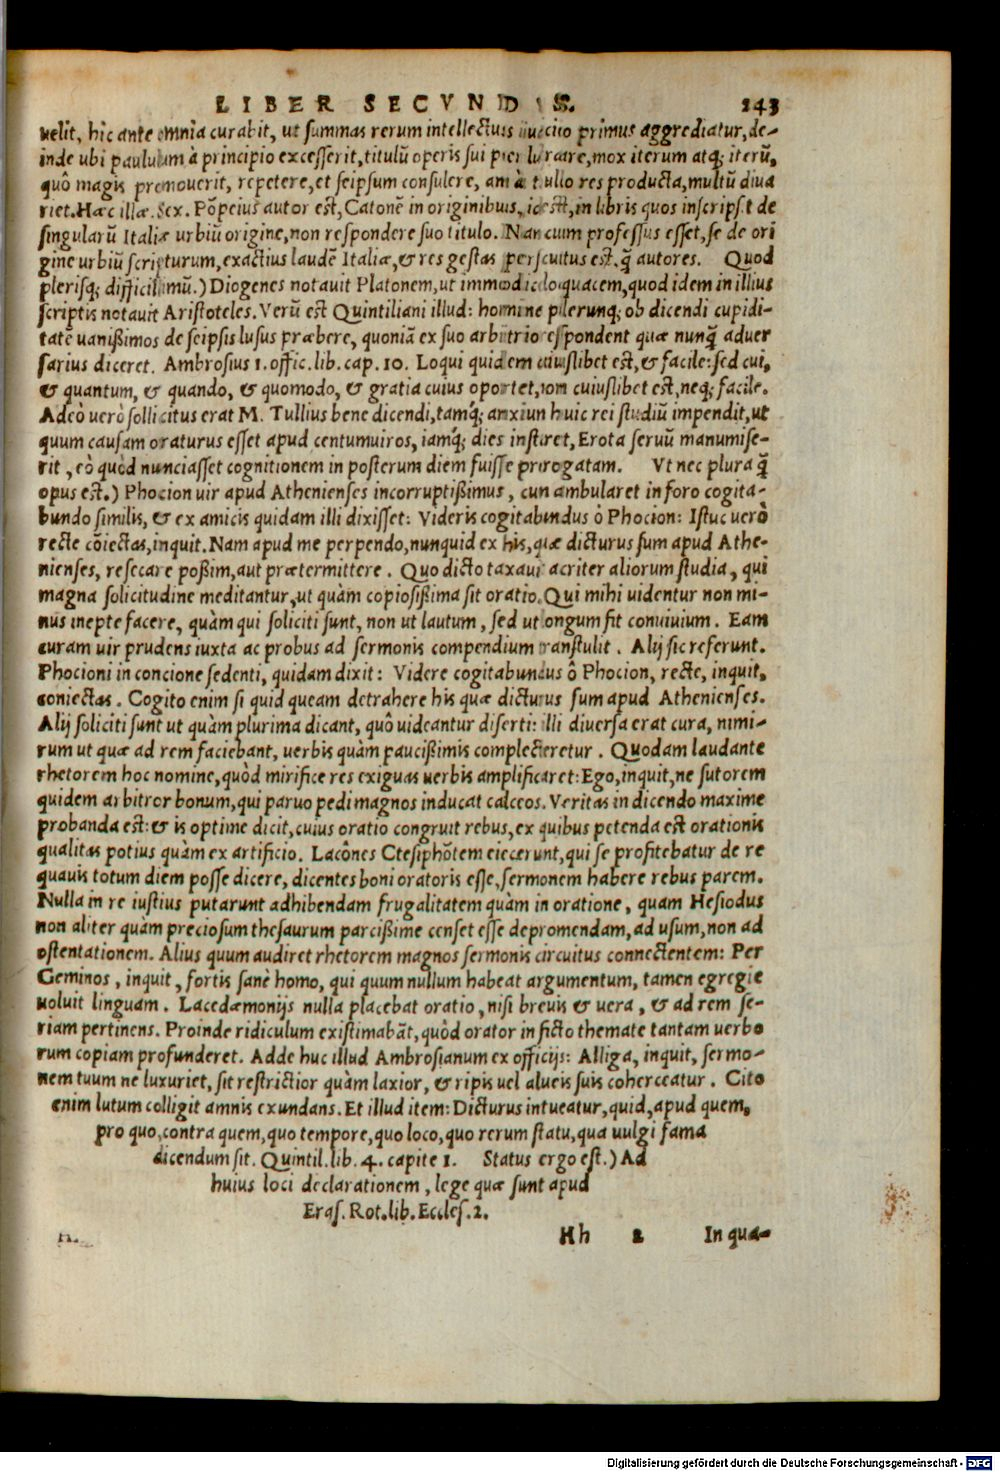 LIBER SECVNDVS. 243
uelit, hic ante omnia curabit, ut summas rerum intellectuis primus aggrediatur, de-
inde ubi paululum à principio excesserit, titulũ operis sui mox iterum atq; iterũ,
quô magis promouerit, repetere, et seipsum consulere, res producta, multũ diua
riet. Hæc illæ. Sex. Põpeius autor est, Catonẽ in originibus, id est, in libris quos inscripsit de
singularũ Italiæ urbiũ origine, non respondere suo titulo. Nam cum professus esset, se de ori
gine urbiũ scripturum, exactius laudẽ Italiæ, & res gestas persecutus est, q̃ autores. Quod
plerisq; difficillimũ.) Diogenes notauit Platonem, ut immodice loquacem, quod idem in illius
scriptis notauit Aristoteles. Verũ est Quintiliani illud: homine plerunq; ob dicendi cupidi-
tatẽ uanißimos de seipsis lusus præbere, quoniã ex suo arbitrio respondent quæ nunq̃ aduer
sarius diceret. Ambrosius 1. offic. lib. cap. 10. Loqui quidem cuiuslibet est, & facile: sed cui,
& quantum, & quando, & quomodo, & gratia cuius oportet, non cuiuslibet est, neq; facile.
Adeò uerò sollicitus erat M. Tullius bene dicendi, tamq́; anxium huic rei studiũ impendit, ut
quum causam oraturus esset apud centumuiros, iamq́; dies instaret, Erota seruũ manumise-
rit, eò quòd nunciasset cognitionem in posterum diem fuisse prorogatam. Vt nec plura q̃
opus est.) Phocion uir apud Athenienses incorruptißimus, cum ambularet in foro cogita-
bundo similis, & ex amicis quidam illi dixisset: Videris cogitabundus ô Phocion: Istuc uerò
recte cõiectas, inquit. Nam apud me perpendo, nunquid ex his, quæ dicturus sum apud Athe-
nienses, resecare poßim, aut prætermittere. Quo dicto taxauit acriter aliorum studia, qui
magna solicitudine meditantur, ut quàm copiosißima sit oratio. Qui mihi uidentur non mi-
nus inepte facere, quàm qui soliciti sunt, non ut lautum, sed ut longum fit conuiuium. Eam
curam uir prudens iuxta ac probus ad sermonis compendium transtulit. Alij sic referunt.
Phocioni in concione sedenti, quidam dixit: Videre cogitabundus ô Phocion, recte, inquit,
coniectas. Cogito enim si quid queam detrahere his quæ dicturus sum apud Athenienses.
Alij soliciti sunt ut quàm plurima dicant, quô uideantur diserti: illi diuersa erat cura, nimi-
rum ut quæ ad rem faciebant, uerbis quàm paucißimis complecteretur. Quodam laudante
rhetorem hoc nomine, quòd mirifice res exiguas uerbis amplificaret: Ego, inquit, ne sutorem
quidem arbitror bonum, qui paruo pedi magnos inducat calceos. Veritas in dicendo maxime
probanda est: & is optime dicit, cuius oratio congruit rebus, ex quibus petenda est orationis
qualitas potius quàm ex artificio. Lacônes Ctesiphõtem eiecerunt, qui se profitebatur de re
quauis totum diem posse dicere, dicentes boni oratoris esse, sermonem habere rebus parem.
Nulla in re iustius putarunt adhibendam frugalitatem quàm in oratione, quam Hesiodus
non aliter quàm preciosum thesaurum parcißime censet esse depromendam, ad usum, non ad
ostentationem. Alius quum audiret rhetorem magnos sermonis circuitus connectentem: Per
Geminos, inquit, fortis sanè homo, qui quum nullum habeat argumentum, tamen egregie
uoluit linguam. Lacedæmonijs nulla placebat oratio, nisi breuis & uera, & ad rem se-
riam pertinens. Proinde ridiculum existimabãt, quòd orator in ficto themate tantam uerbo
rum copiam profunderet. Adde huc illud Ambrosianum ex officijs: Alliga, inquit, sermo-
nem tuum ne luxuriet, sit restrictior quàm laxior, & ripis uel alueis suis coherceatur. Cito
enim lutum colligit amnis exundans. Et illud item: Dicturus intueatur, quid, apud quem,
pro quo, contra quem, quo tempore, quo loco, quo rerum statu, qua uulgi fama
dicendum sit. Quintil. lib. 4. capite 1. Status ergo est.) Ad
huius loci declarationem, lege quæ sunt apud
Eras. Rot. lib. Eccles. 2.
Hh 2 In qua-
Digitalisierung gefördert durch die Deutsche Forschungsgemeinschaft - DFG